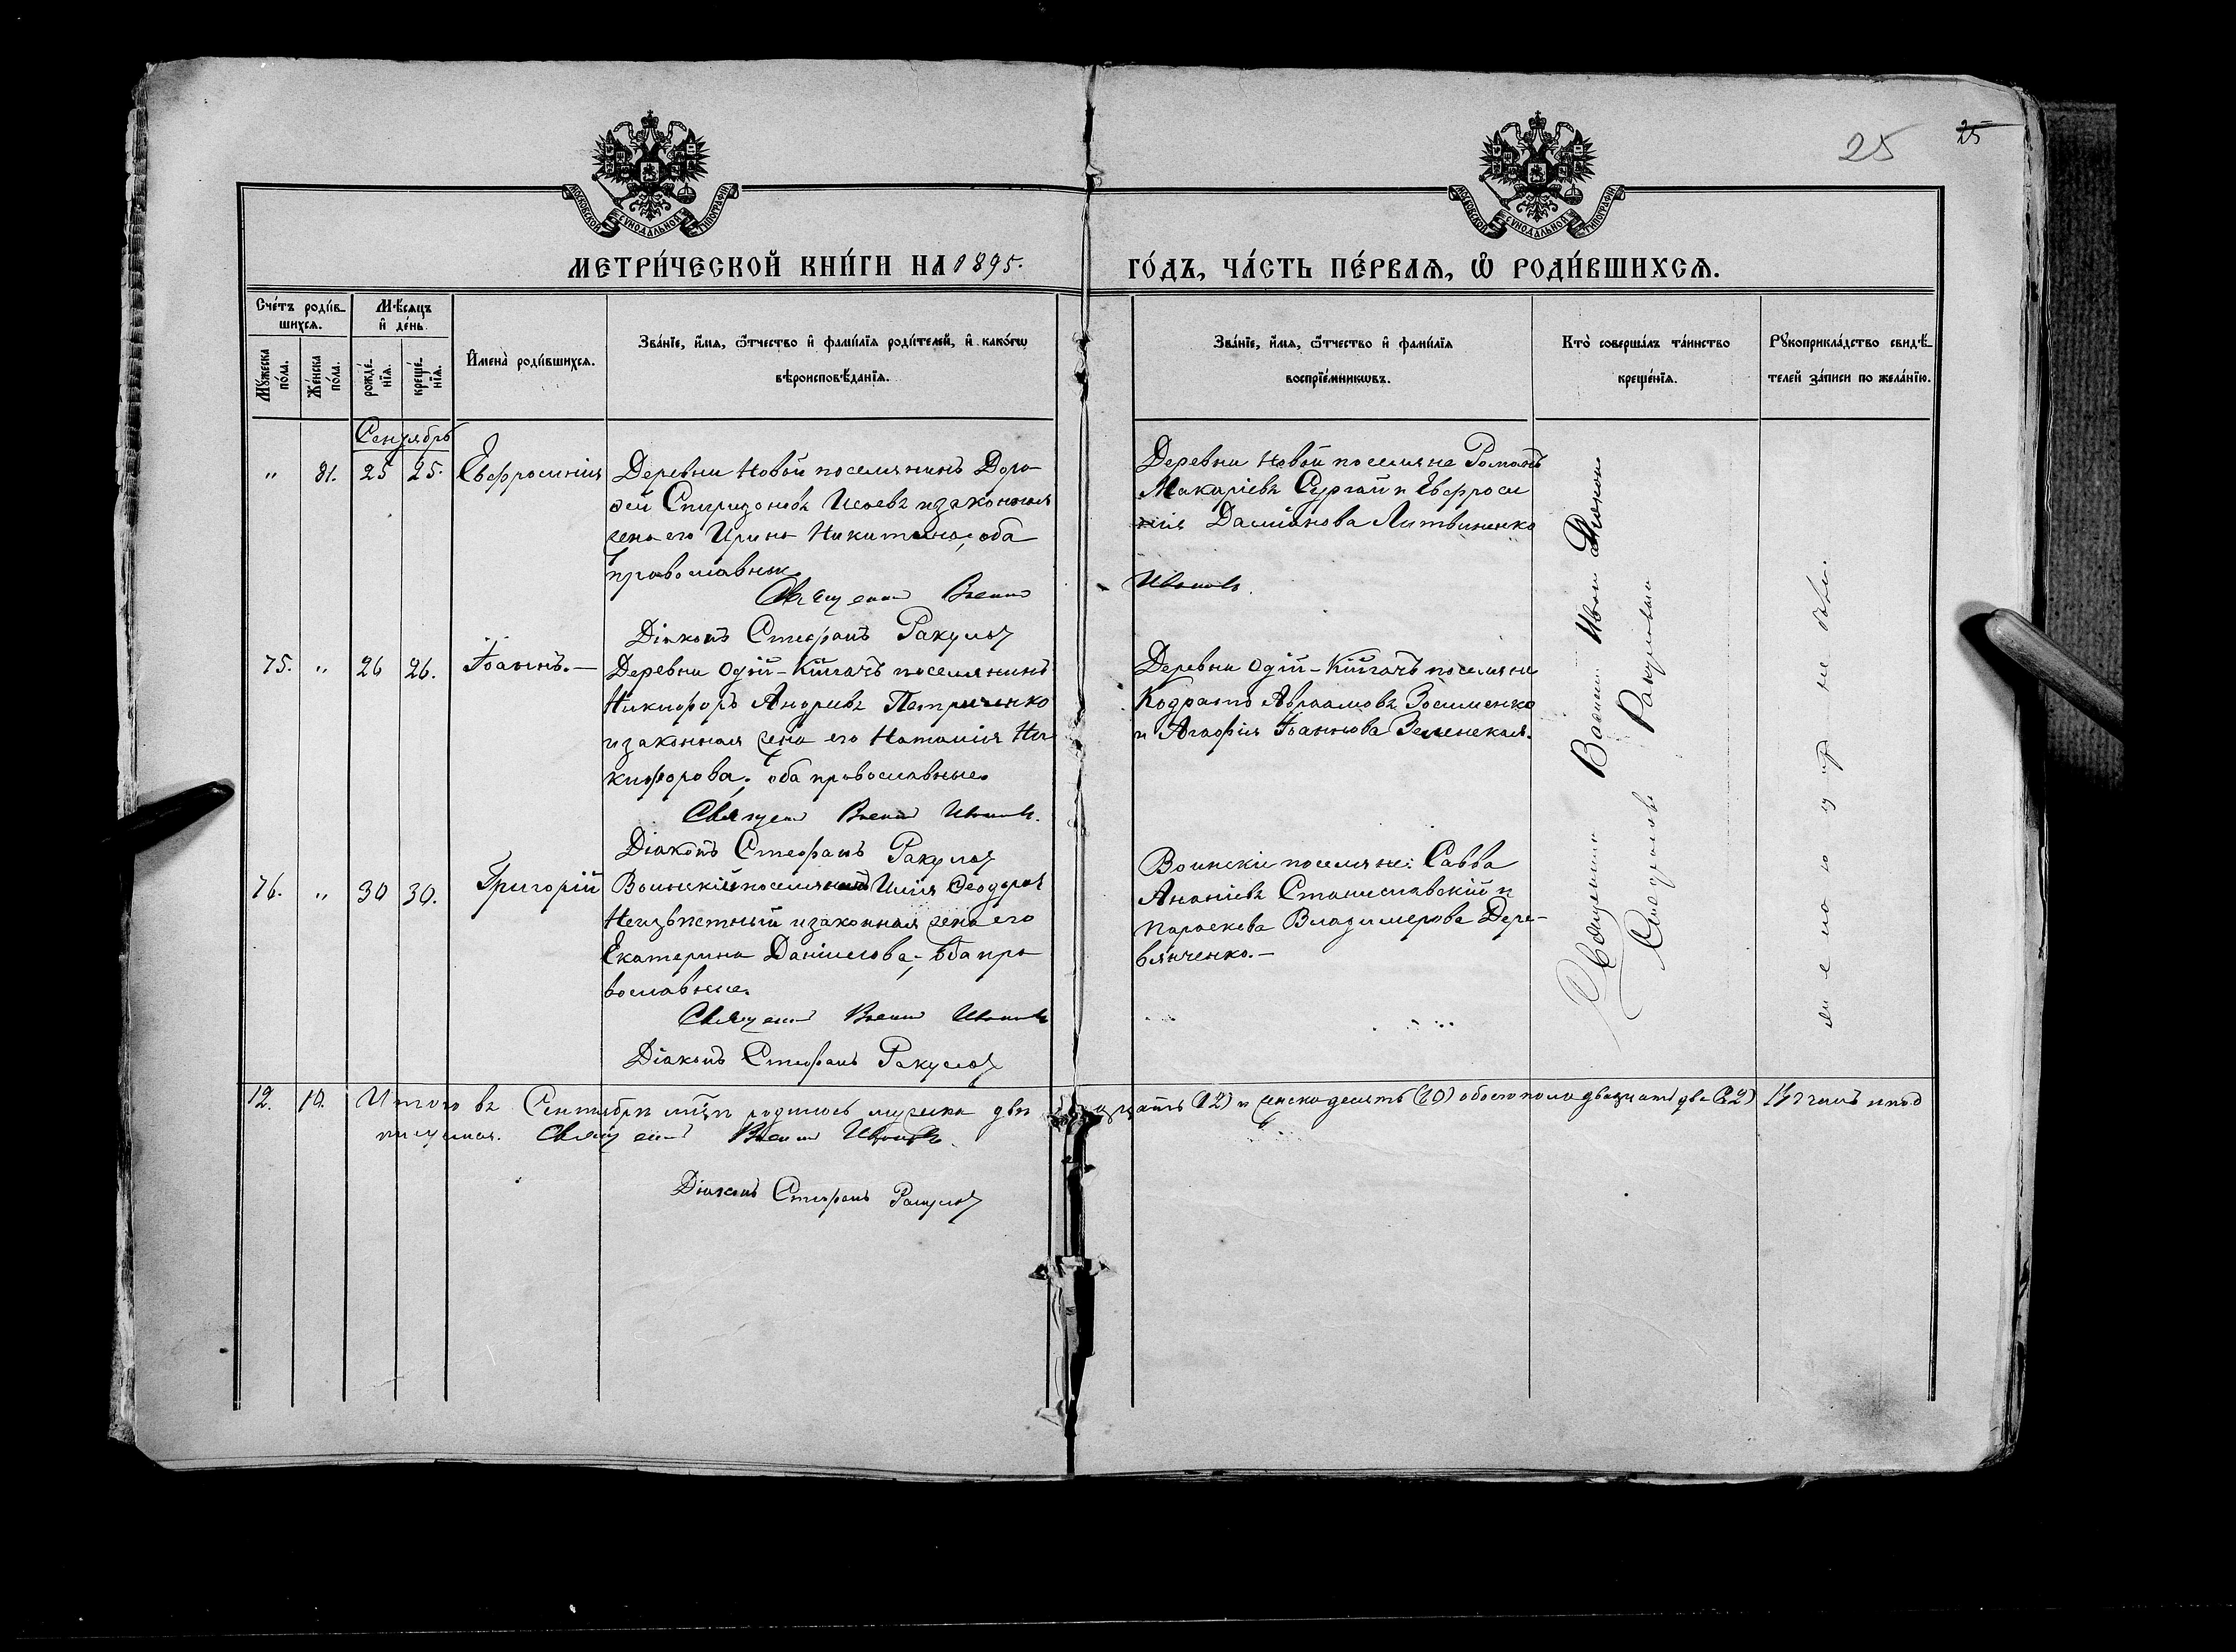 25 25
МОСКОВСКОЙ СѴНОДАЛЬНОЙ ТИПОГРАФІИ
МОСКОВСКОЙ СѴНОДАЛЬНОЙ ТИПОГРАФІИ
МЕТРИ́ЧЕСКОЙ КНИ́ГИ НА 1895.
ГО́ДЪ, ЧА́СТЬ ПЕ́РВАѦ, Ѽ РОДИ́ВШИХСѦ.
Сче́тъ роди́в-
шихсѧ.
Мꙋ́жеска
по́ла.
Же́нска
по́ла.
Мѣ́сѧцъ
и҆ де́нь.
рожде́-
нїѧ.
креще́-
нїѧ.
И҆мена̀ роди́вшихсѧ.
Зва́нїе, и҆́мѧ, ѻ҆́тчество и҆ фами́лїѧ роди́телей, и҆ како́гѡ
вѣроисповѣ́данїѧ.
Зва́нїе, и҆́мѧ, ѻ҆́тчество и҆ фами́лїѧ
воспрїе́мникѡвъ.
Кто̀ соверша́лъ та́инство
креще́нїѧ.
Рꙋкоприкла́дство свидѣ́-
телей за́писи по жела́нїю.
Сентябрь
" 81. 25 25. Евфросинія
Деревни Новой поселянинъ Доро-
фей Спиридоновъ Исаевъ и законная
жена его Ирина Никитина; оба
православные.
Священ Васил Иванов.
Діаконъ Стефанъ Ракулов
Деревни Новой поселяне Романъ
Макаріевъ Сургай и Евфроси
нія Даміанова Литвиненко
75. " 26 26. Іоаннъ.—
Деревни Одій-Кійгачъ поселянинъ
Никифоръ Андреевъ Петриченко
и законная жена его Наталія Ни-
кифорова; оба православные.
Священ Васил Иванов.
Діаконъ Стефанъ Ракулов
Деревни Одій-Кійгачъ поселяне
Кодратъ Авраамовъ Зосименко
и Агафія Іоаннова Зеленская.
76. " 30 30. Григорій
Воинскій поселянинъ Илія Феодоров
Неизвѣстный и законная жена его
Екатерина Даніилова; оба пра-
вославные.
Священ Васил Иванов
Діаконъ Стефанъ Ракулов
Воинскіе поселяне: Савва
Ананіевъ Станиславскій и
Параскева Владимерова Дере-
вянченко.—
12. 10. Итого въ Сентябрѣ мцѣ родилось мужеска двѣнадцать (12) и женска десять (10) обоего пола двадцать два (22)
Священ Васил Иванов.
Діаконъ Стефанъ Ракулов